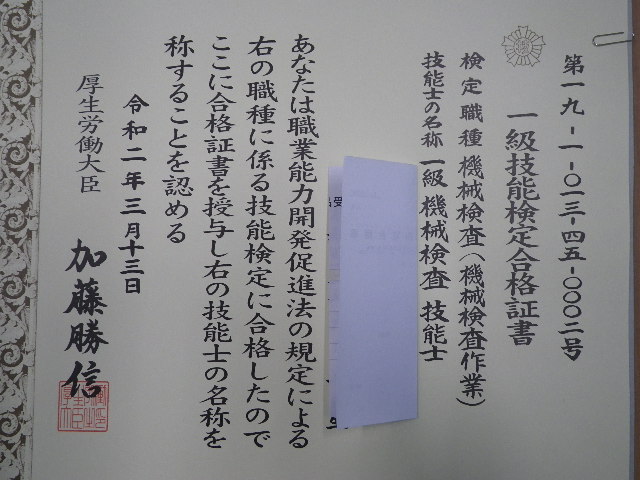 第一九-一-〇一三-四五-〇〇〇二号
一級技能検定合格証書
検定職種 機械検査(機械検査作業)
技能士の名称 一級 機械検査 技能士
あなたは職業能力開発促進法の規定による
右の職種に係る技能検定に合格したので
ここに合格証書を授与し右の技能士の名称を
称することを認める
令和二年三月十三日
厚生労働大臣 加藤勝信